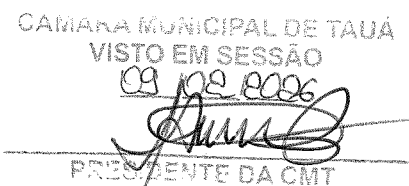 CÂMARA MUNICIPAL DE TAUÁ
VISTO EM SESSÃO
09 / 02 / 2026
PRESIDENTE DA CMT